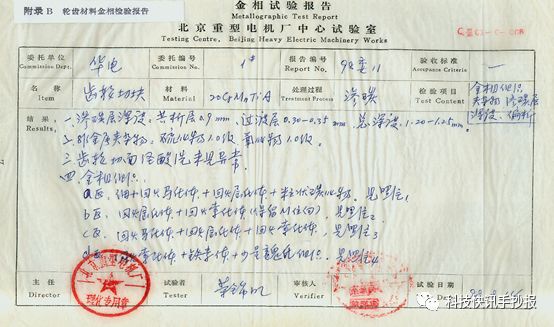 附录 B 轮齿材料金相检验报告
金相试验报告
Metallographic Test Report
北京重型电机厂中心试验室
Testing Centre, Beijing Heavy Electric Machinery Works
委托单位 华电 委托编号 1# 报告编号 98委11 验收标准 —
Commission Dept. Commission No. Report No. Acceptance Criteria
名称 齿轮切块 材料 20CrMnTiA 处理过程 渗碳 检验项目 金相组织
Item Material Treatment Process Test Content 夹杂物 渗碳层
深度、偏析
结果: 一. 渗碳层深度: 共析层0.9mm, 过渡层0.30-0.35mm 总深度: 1.20-1.25mm.
Results, 二. 非金属夹杂物: 硫化物1.0级 氧化物1.0级.
三. 齿轮切面经酸洗未见异常.
四. 金相组织:
a区: 回火马氏体 + 粒状碳化物. 见照片1
b区: 见照片2
c区: 回火马氏体 + 见照片3
d区: 索氏体 + 铁素体 + 少量魏氏组织. 见照片4
北京重型电机厂
理化专用章
主任 试验者 审核人 试验日期
Director Tester Verifier Test Date
科技快讯手抄报